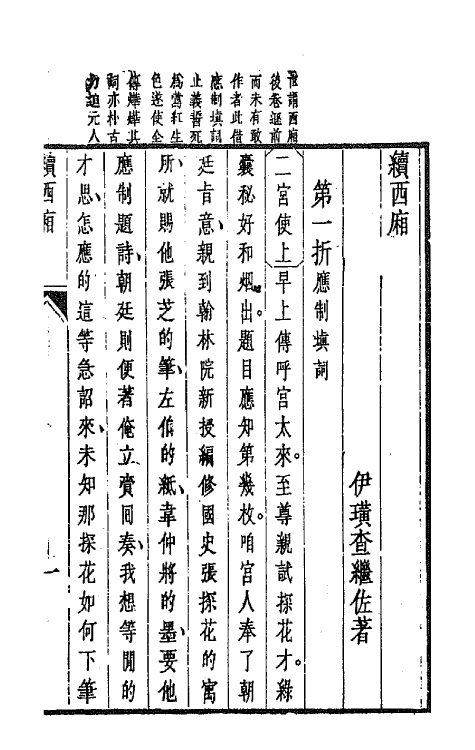 世謂西廂
後卷遜前
而未有敢
作者此借
應制填詞
止義誓死
為鶯紅生
色遂使全
傳燁燁其
詞亦朴古
力追元人
續西廂
伊璜查繼佐著
第一折應制填詞
二宮使上早上傳呼宮太來。至尊親試探花才。綠
囊秘好和烟出。題目應知第幾枚。咱宮人奉了朝
廷旨意、親到翰林院新授編修國史張探花的寓
所、就賜他張芝的筆、左伯的紙、韋仲將的墨、要他
應制題詩、朝廷則便著俺立賚囘奏、我想等閒的
才思、怎應的這等急詔來、未知那探花如何下筆
續西廂
一